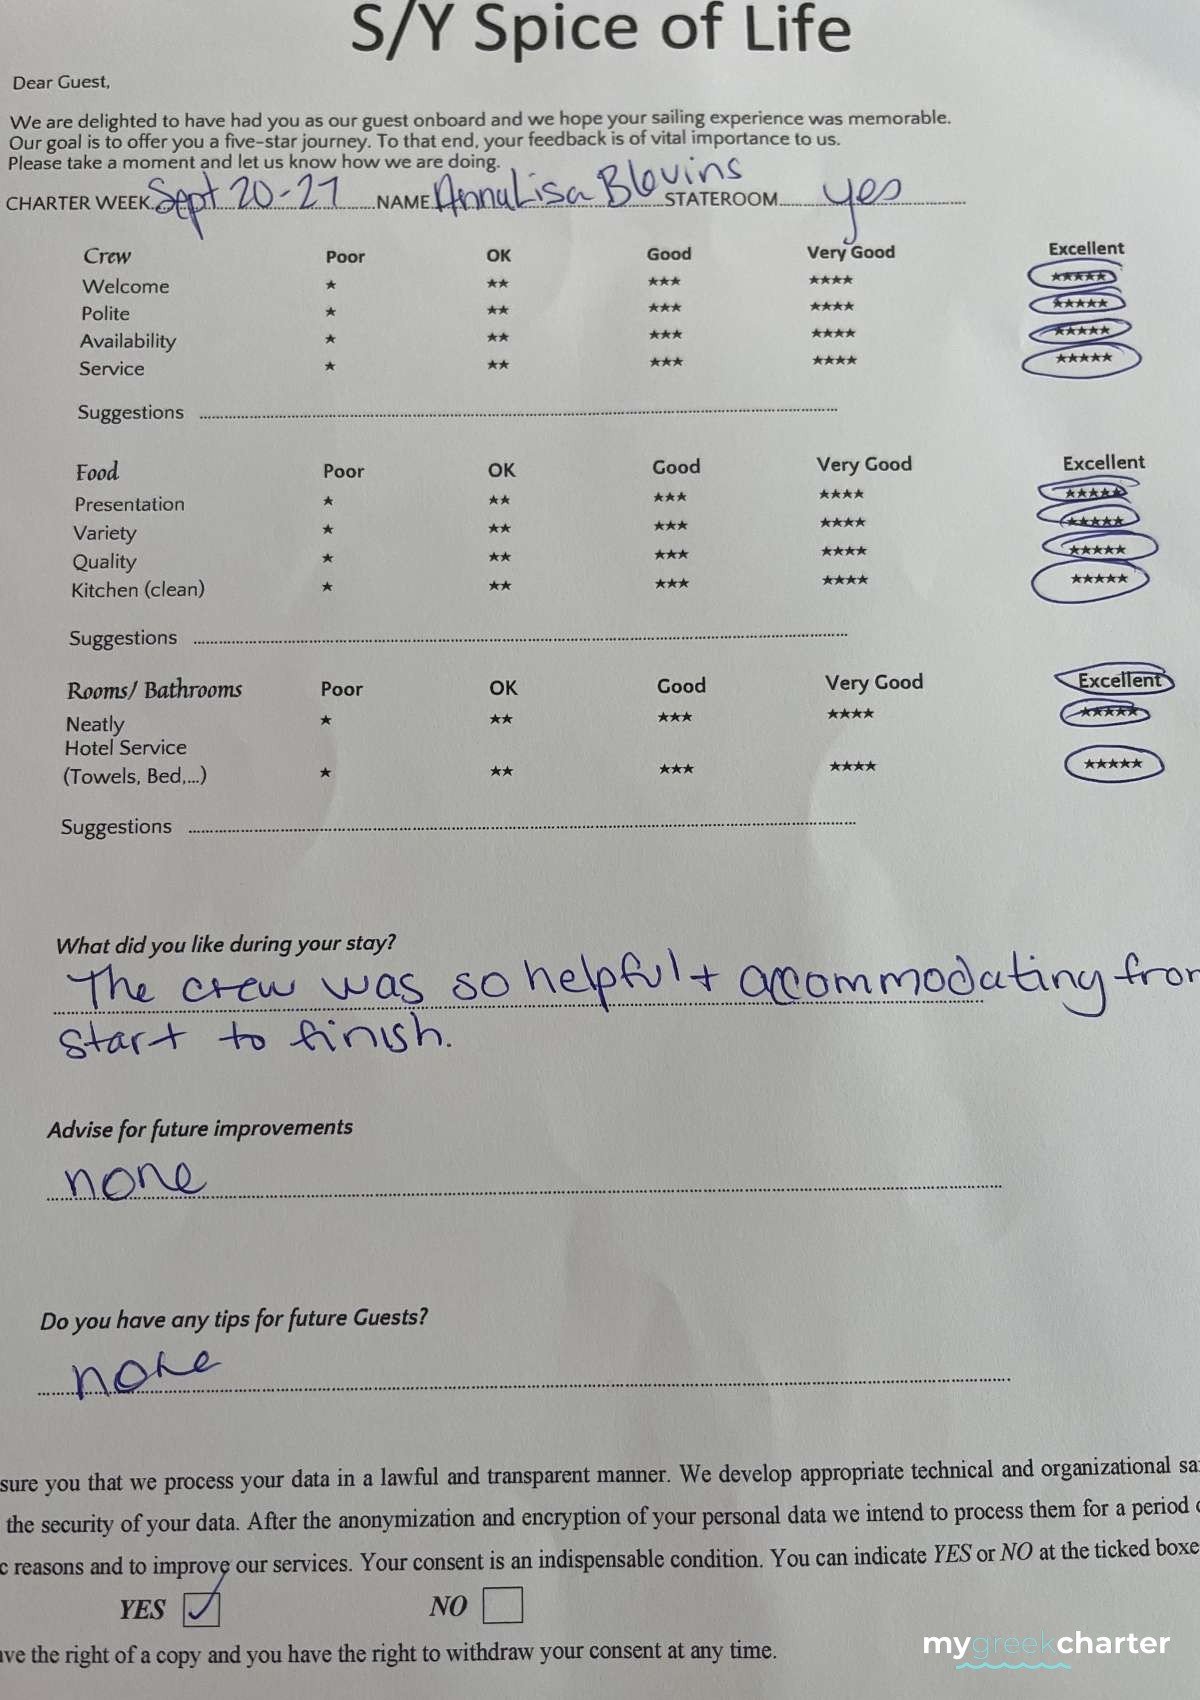 S/Y Spice of Life
Dear Guest,
We are delighted to have had you as our guest onboard and we hope your sailing experience was memorable.
Our goal is to offer you a five-star journey. To that end, your feedback is of vital importance to us.
Please take a moment and let us know how we are doing.
CHARTER WEEK Sept 20-27 NAME AnnaLisa Blevins STATEROOM yes
Crew Poor OK Good Very Good Excellent
Welcome ★ ★★ ★★★ ★★★★ ★★★★★
Polite ★ ★★ ★★★ ★★★★ ★★★★★
Availability ★ ★★ ★★★ ★★★★ ★★★★★
Service ★ ★★ ★★★ ★★★★ ★★★★★
Suggestions
Food Poor OK Good Very Good Excellent
Presentation ★ ★★ ★★★ ★★★★ ★★★★★
Variety ★ ★★ ★★★ ★★★★ ★★★★★
Quality ★ ★★ ★★★ ★★★★ ★★★★★
Kitchen (clean) ★ ★★ ★★★ ★★★★ ★★★★★
Suggestions
Rooms/ Bathrooms Poor OK Good Very Good Excellent
Neatly ★ ★★ ★★★ ★★★★ ★★★★★
Hotel Service
(Towels, Bed,...) ★ ★★ ★★★ ★★★★ ★★★★★
Suggestions
What did you like during your stay?
The crew was so helpful + accommodating from
start to finish.
Advise for future improvements
none
Do you have any tips for future Guests?
none
sure you that we process your data in a lawful and transparent manner. We develop appropriate technical and organizational
the security of your data. After the anonymization and encryption of your personal data we intend to process them for a period
reasons and to improve our services. Your consent is an indispensable condition. You can indicate YES or NO at the ticked boxe
YES ✓ NO
ave the right of a copy and you have the right to withdraw your consent at any time.
mygreekcharter